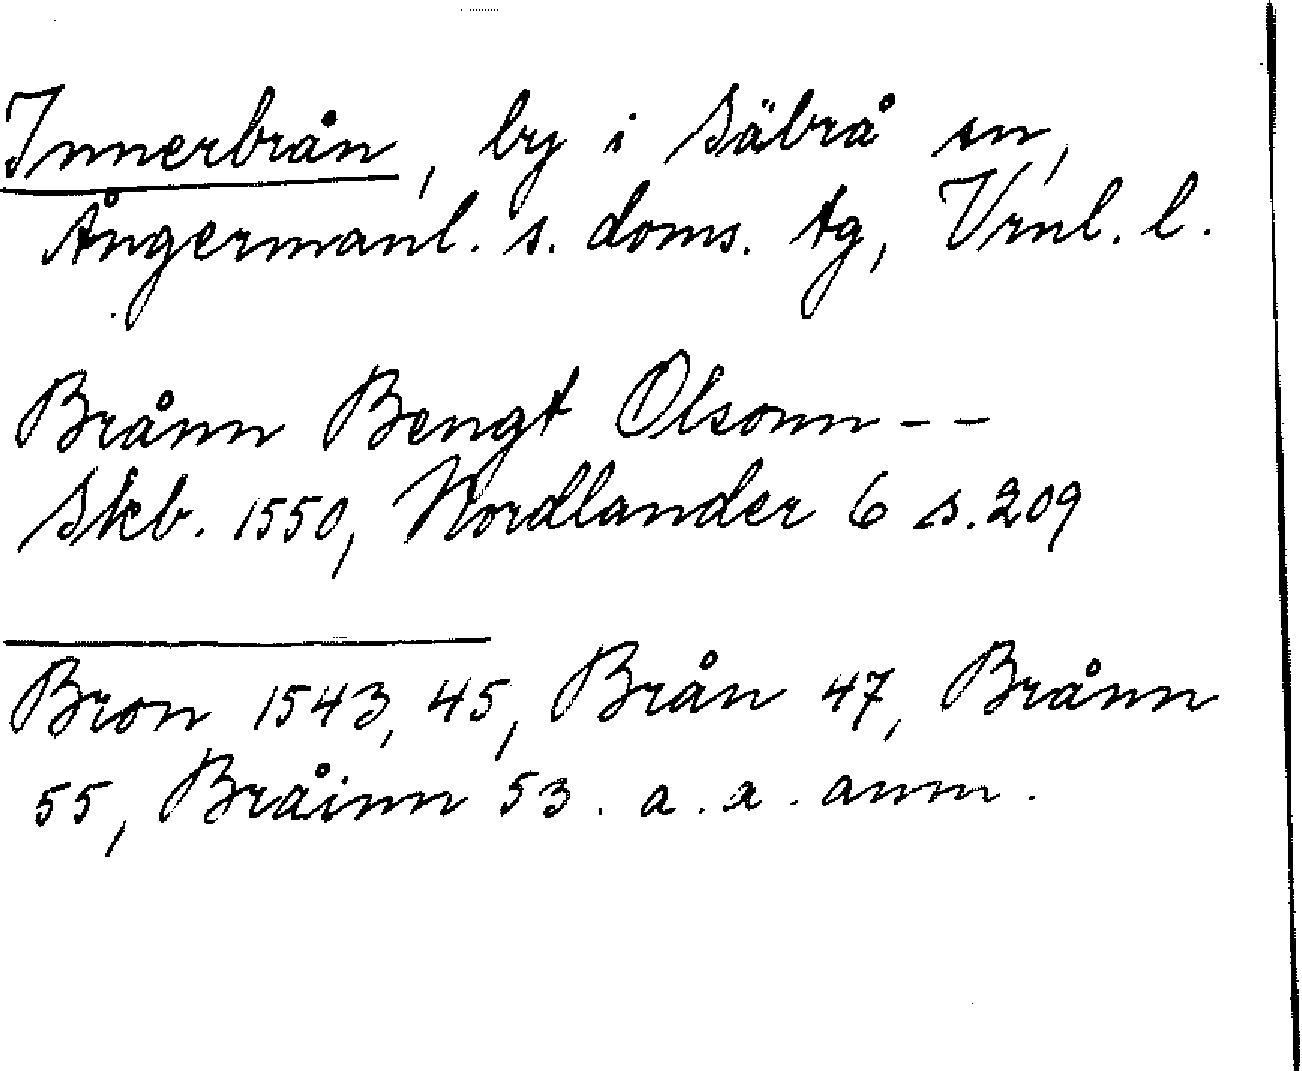 Innerbrån, by i Säbrå sn,
Ångermanl. s. doms. tg, Vrnl. l.
Brånn Bengt Olsonn - -
Skb. 1550, Nordlander 6 s. 209
Bron 1543, 45, Brån 47, Brånn
55, Bråinn 53. a. a. anm.